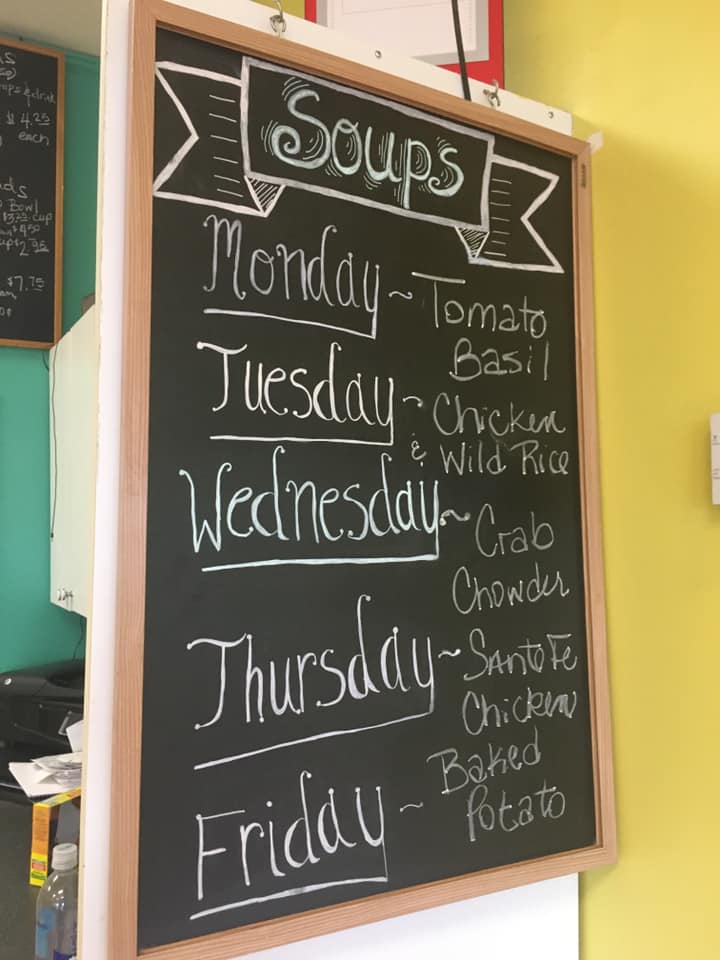 Soups
Monday ~ Tomato
Basil
Tuesday ~ Chicken
& Wild Rice
Wednesday ~ Crab
Chowder
Thursday ~ Santa Fe
Chicken
Friday ~ Baked
Potato
$4.25
each
Bowl
cup
$4.50
$2.95
$7.75